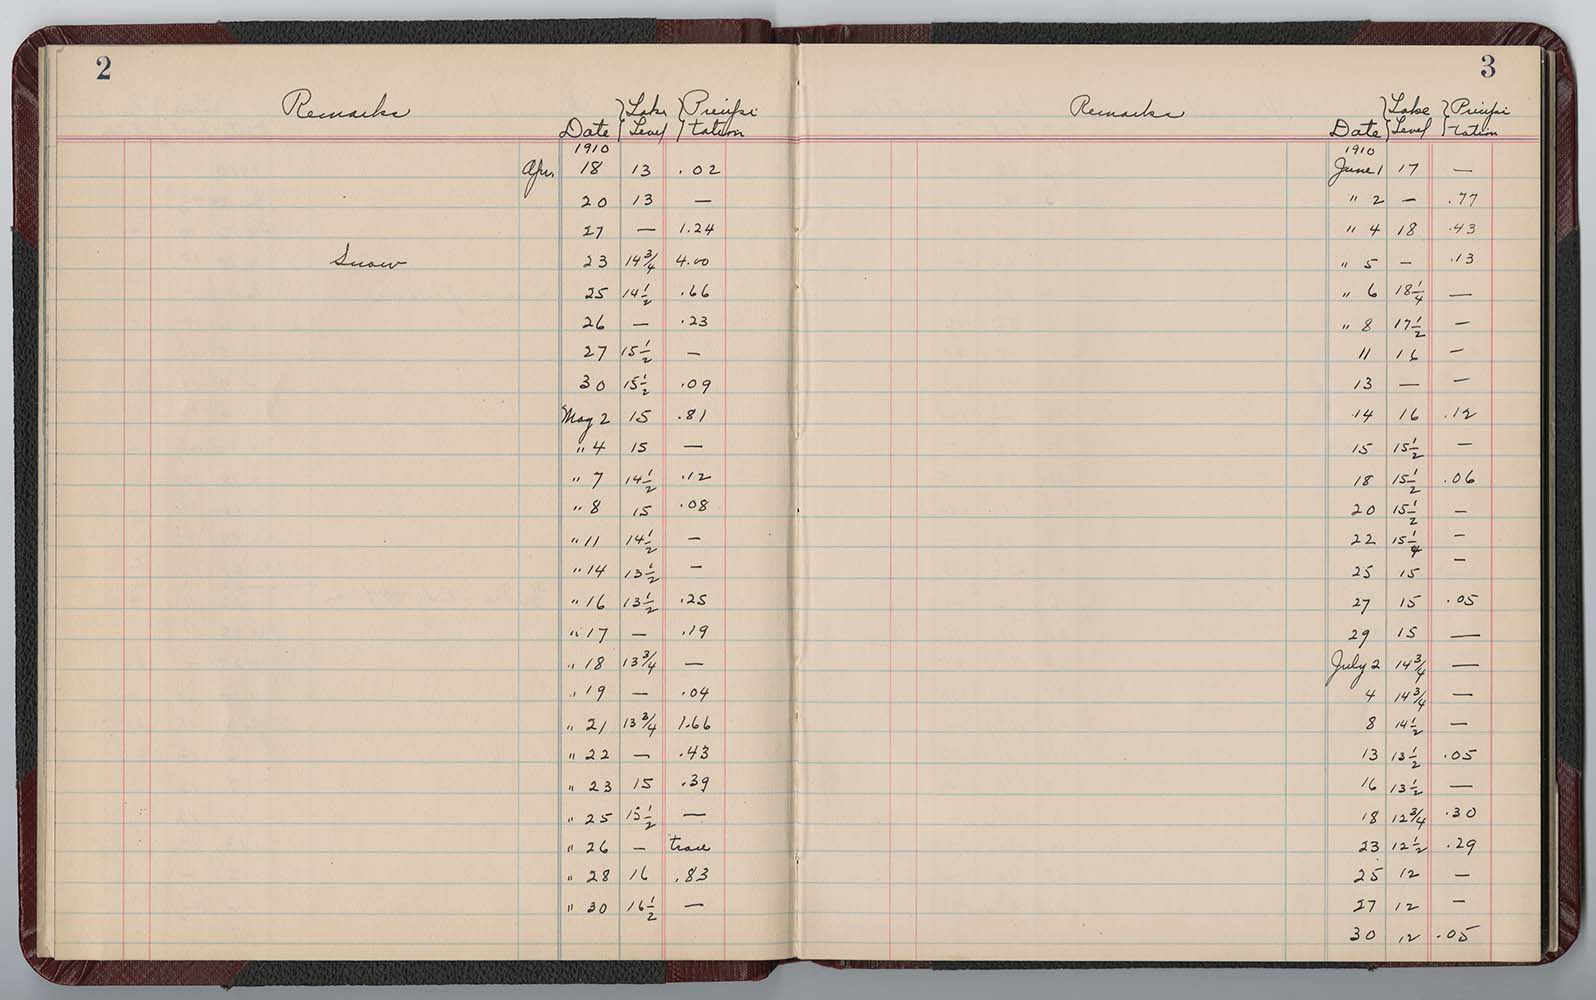 2
Remarks Date Lake Level Precipitation
1910
Apr. 18 13 .02
20 13 —
27 — 1.24
Snow 23 14 3/4 4.00
25 14 1/2 .66
26 — .23
27 15 1/2 —
30 15 1/2 .09
May 2 15 .81
" 4 15 —
" 7 14 1/2 .12
" 8 15 .08
" 11 14 1/2 —
" 14 13 1/2 —
" 16 13 1/2 .25
" 17 — .19
" 18 13 3/4 —
" 19 — .04
" 21 13 3/4 1.66
" 22 — .43
" 23 15 .39
" 25 15 1/2 —
" 26 — trace
" 28 16 .83
" 30 16 1/2 —
3
Remarks Date Lake Level Precipitation
1910
June 1 17 —
" 2 — .77
" 4 18 .43
" 5 — .13
" 6 18 1/4 —
" 8 17 1/2 —
11 16 —
13 — —
14 16 .12
15 15 1/2 —
18 15 1/2 .06
20 15 1/2 —
22 15 1/4 —
25 15 —
27 15 .05
29 15 —
July 2 14 3/4 —
4 14 3/4 —
8 14 1/2 —
13 13 1/2 .05
16 13 1/2 —
18 12 3/4 .30
23 12 1/2 .29
25 12 —
27 12 —
30 12 .05